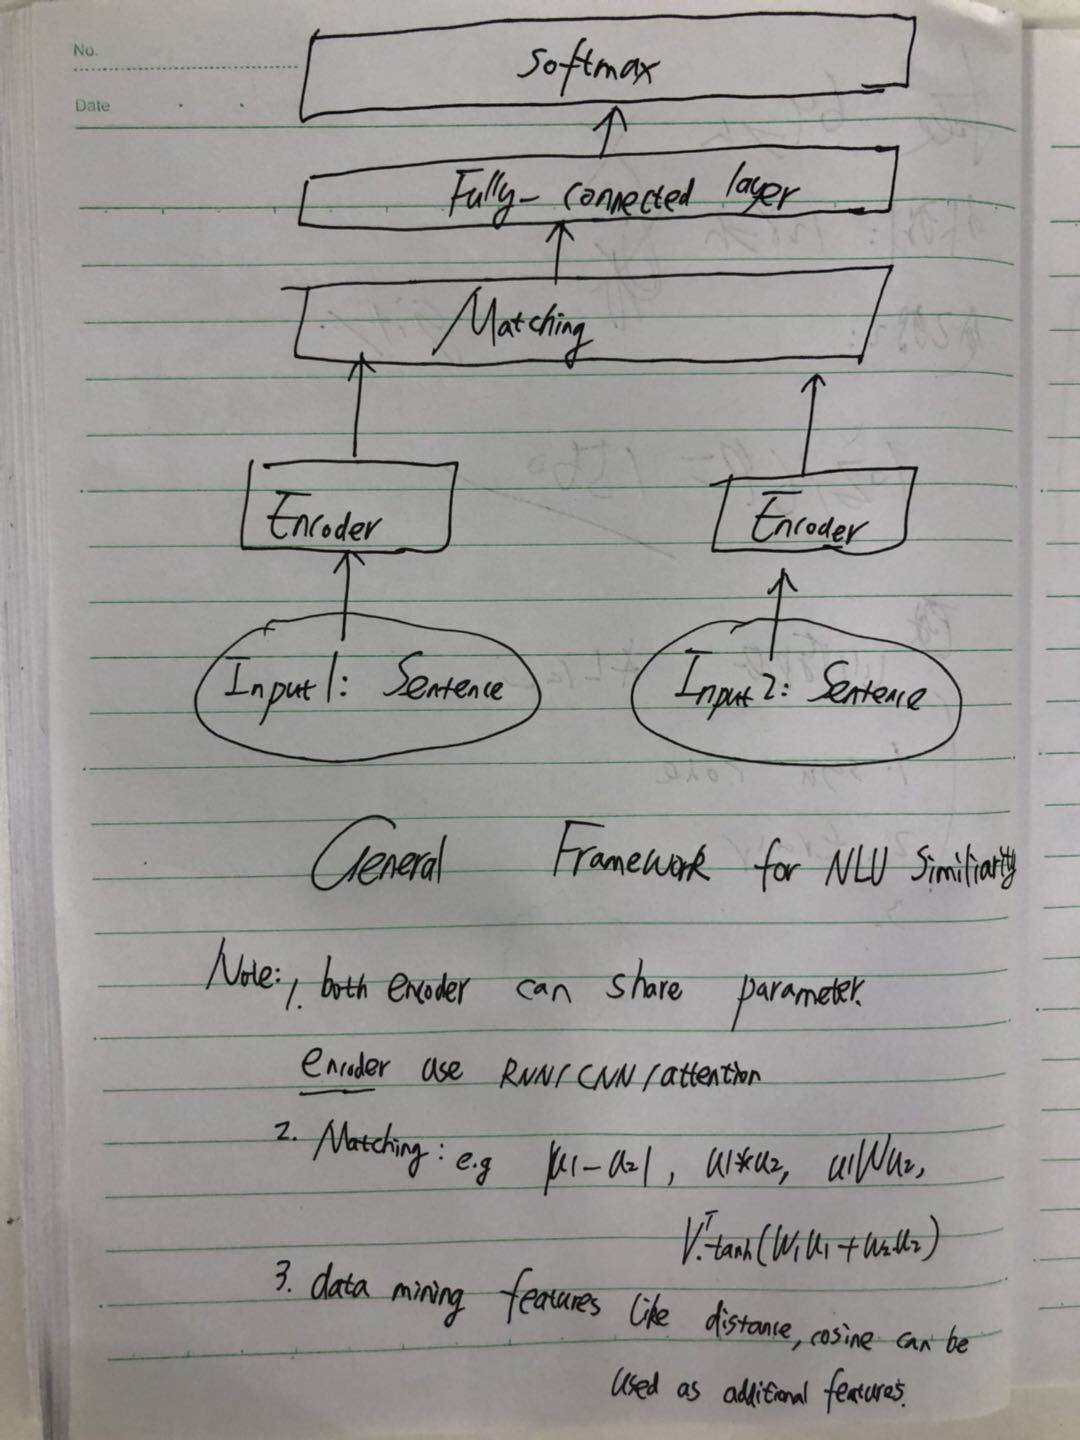 No.
Date
Softmax
Fully-connected layer
Matching
Encoder
Encoder
Input1: Sentence
Input2: Sentence
General Framework for NLU Similiarity
Note: 1. both encoder can share parameter.
encoder use RNN/CNN/attention
2. Matching: e.g |u1-u2|, u1*u2, u1Wu2,
V^T.tanh(W1u1+W2u2)
3. data mining features like distance, cosine can be
used as additional features.